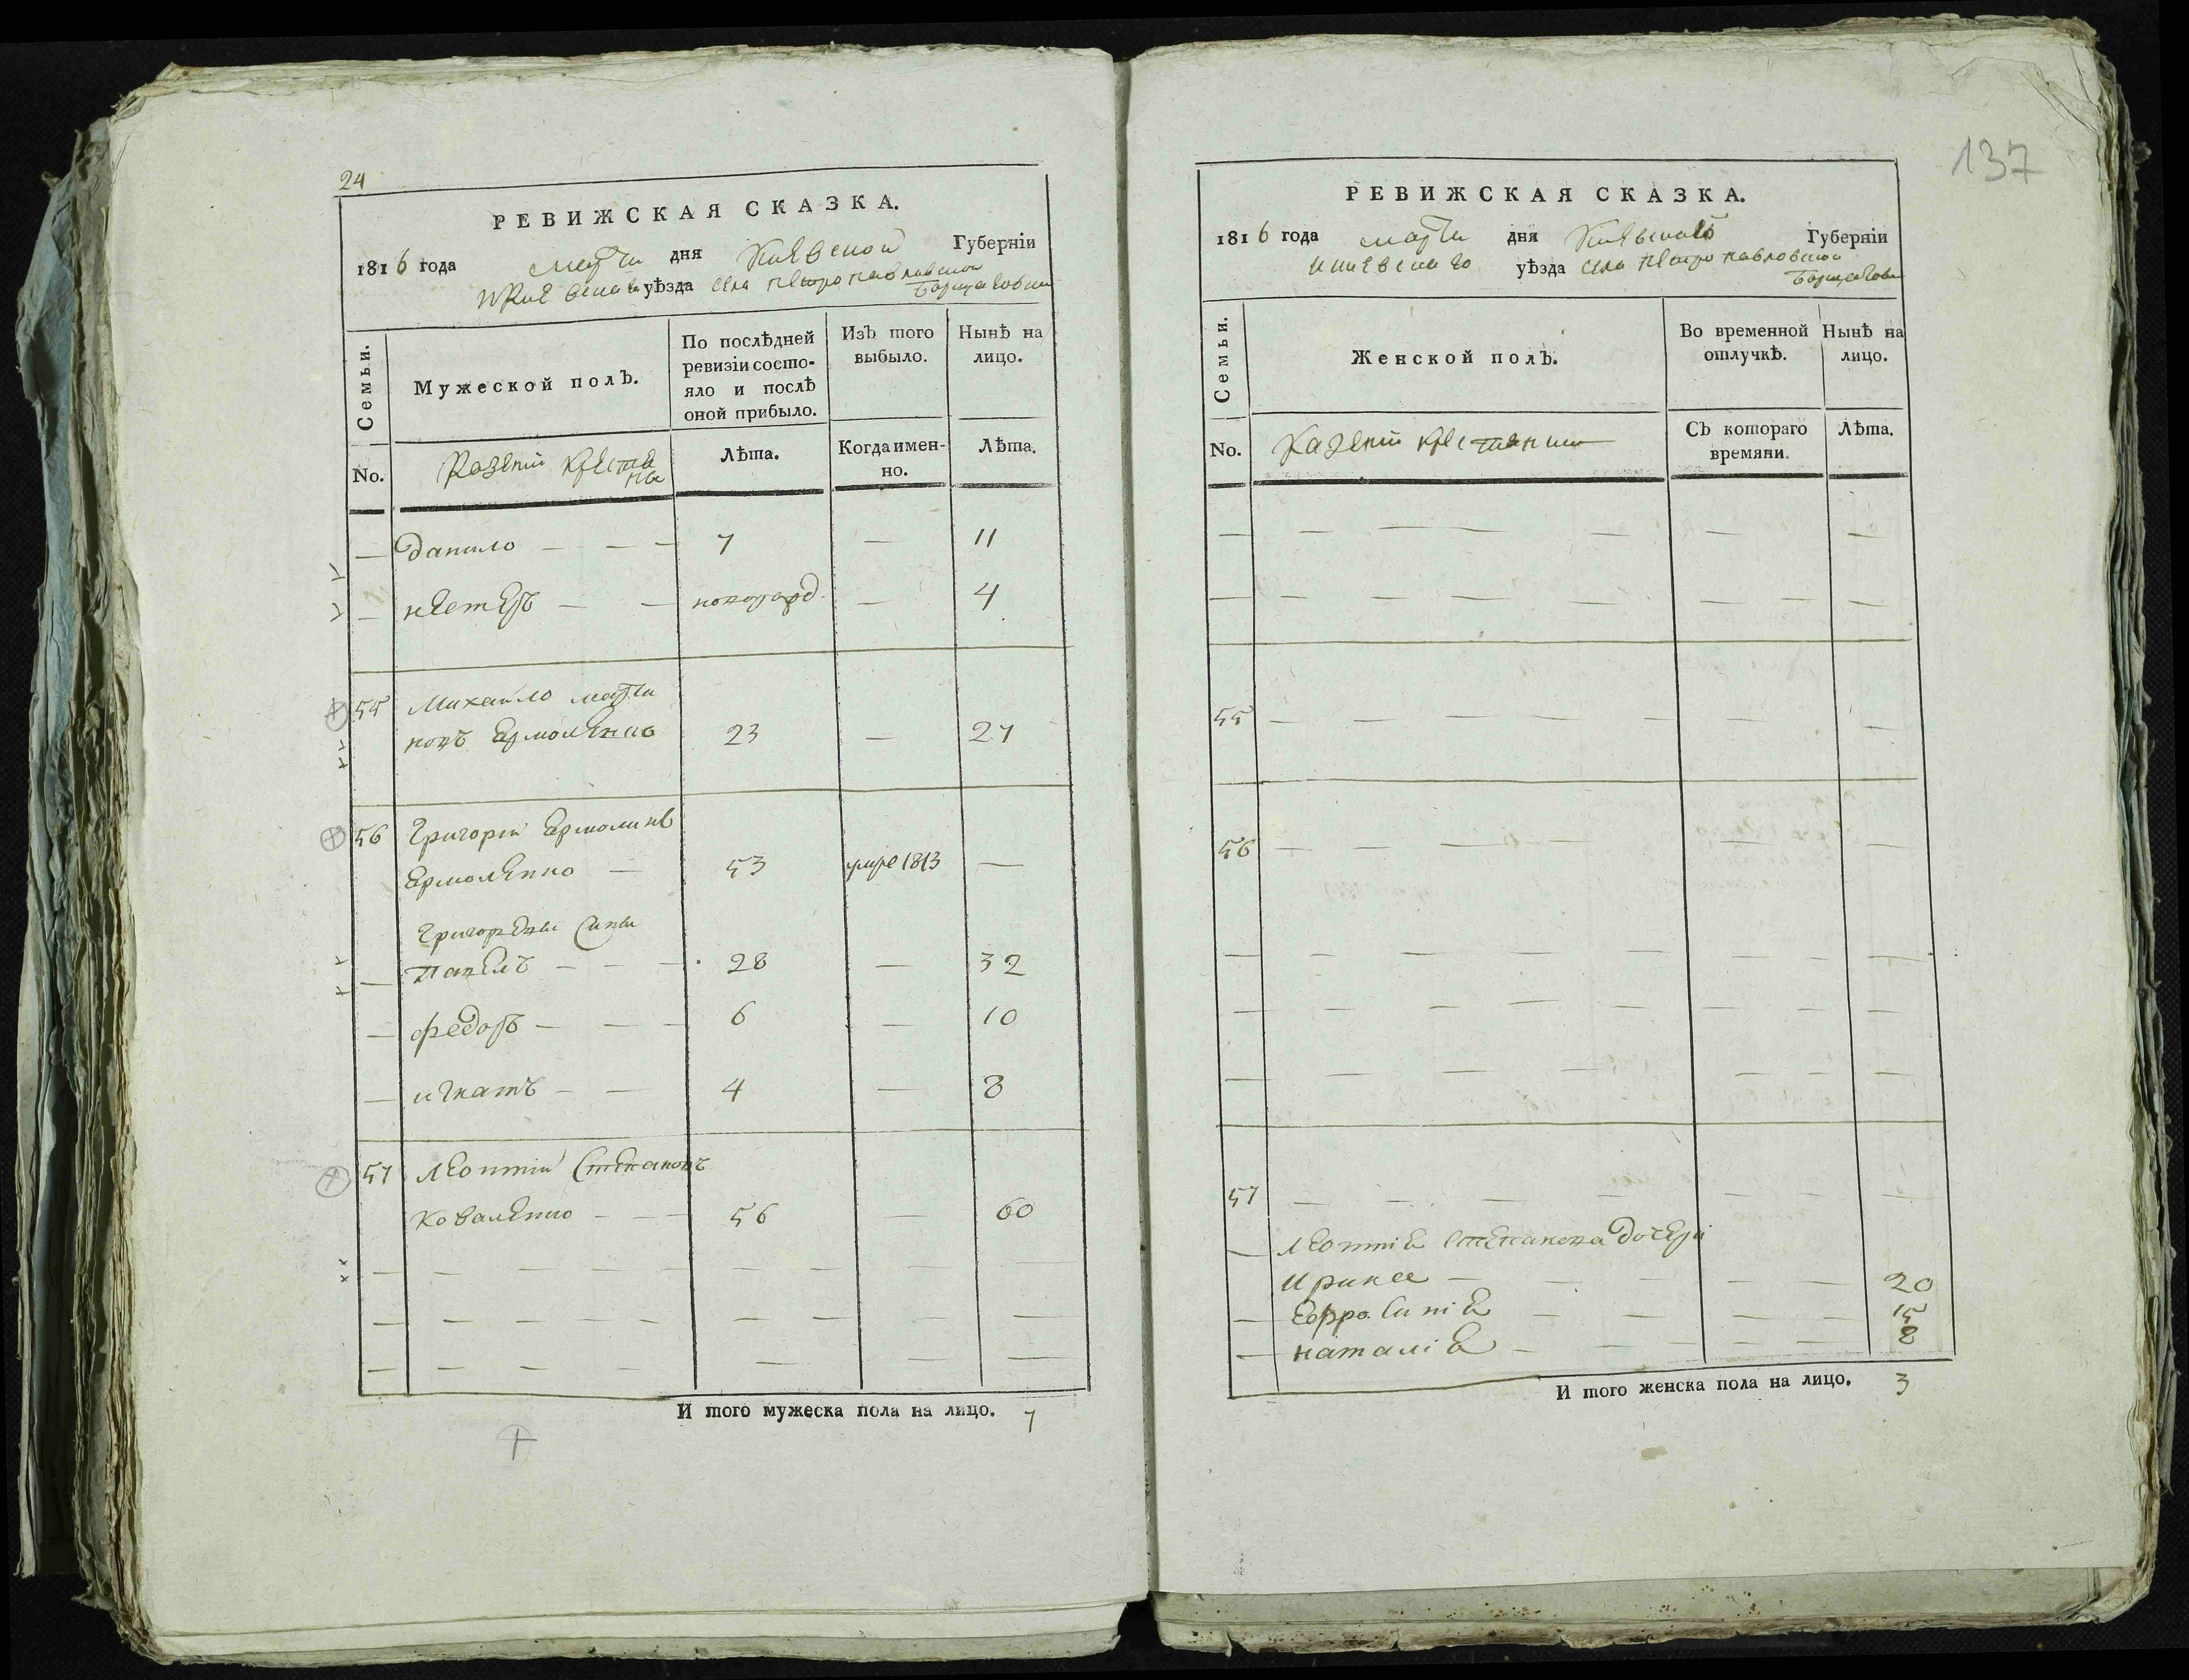 24
РЕВИЖСКАЯ СКАЗКА.
1816 года марта дня Киевской Губерніи
Киевскаго уѣзда села Петропавловской
Борщаговки
Семьи. Мужеской полъ. По послѣдней ревизіи состояло и послѣ оной прибыло. Изъ того выбыло. Нынѣ на лицо.
No. Казеніи крестяне Лѣта. Когда именно. Лѣта.
— Данило — — — 7 — 11
— нестеръ — — новорожд — 4
55 Михайло марти
новъ Ермоленко 23 — 27
56 Григорій Ермолинъ
Ермоленко — 53 умре 1813 —
Григоріевы Сины
— Павелъ — — — 28 — 32
— федоръ — — — 6 — 10
— игнатъ — — 4 — 8
57 леонтій Степановъ
Коваленко — — — 56 — 60
И того мужеска пола на лицо. 7
137
РЕВИЖСКАЯ СКАЗКА.
1816 года марта дня Киевской Губерніи
Киевскаго уѣзда села Петропавловской
Борщаговки
Семьи. Женской полъ. Во временной отлучкѣ. Нынѣ на лицо.
No. Казеніи крестянки Съ котораго времяни. Лѣта.
55 — — — — — — —
56 — — — — — — —
57 — — — — — — —
— леонтія Степанова дочери
Ирина — — — — — 20
— Ефросинія — — — — 15
— наталія — — — — 8
И того женска пола на лицо. 3